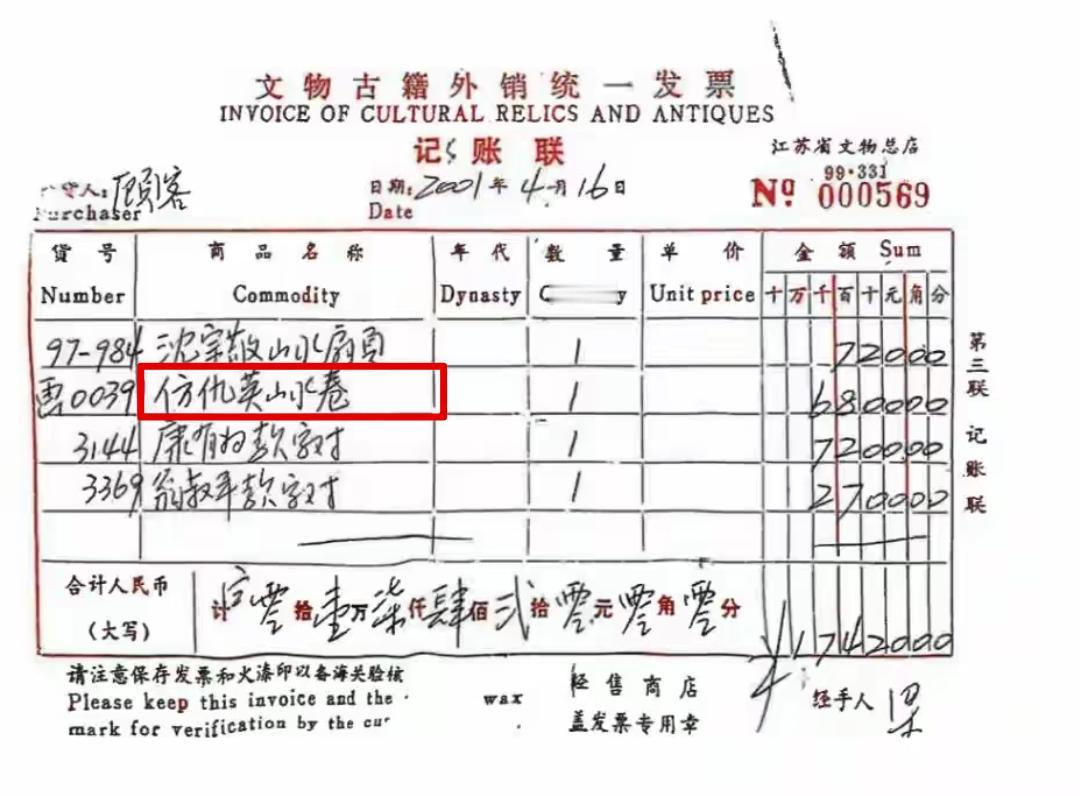 文物古籍外销统一发票
INVOICE OF CULTURAL RELICS AND ANTIQUES
记账联
江苏省文物总店
99·331
货人: 顾客
Purchaser
日期: 2001年4月16日
Date
Nº 000569
货号 商品名称 年代 数量 单价 金额 Sum
Number Commodity Dynasty Unit price 十万千百十元角分
97-984 沈宗敬山水扇页 1 72000
0039 仿仇英山水卷 1 680000
3144 康有为款字对 1 720000
3369 翁叔平款字对 1 270000
合计人民币
(大写)
计 零拾壹万柒仟肆佰贰拾零元零角零分 ¥1742000
第三联 记账联
请注意保存发票和火漆印以备海关验核
Please keep this invoice and the wax
mark for verification by the
经售商店
盖发票专用章
经手人